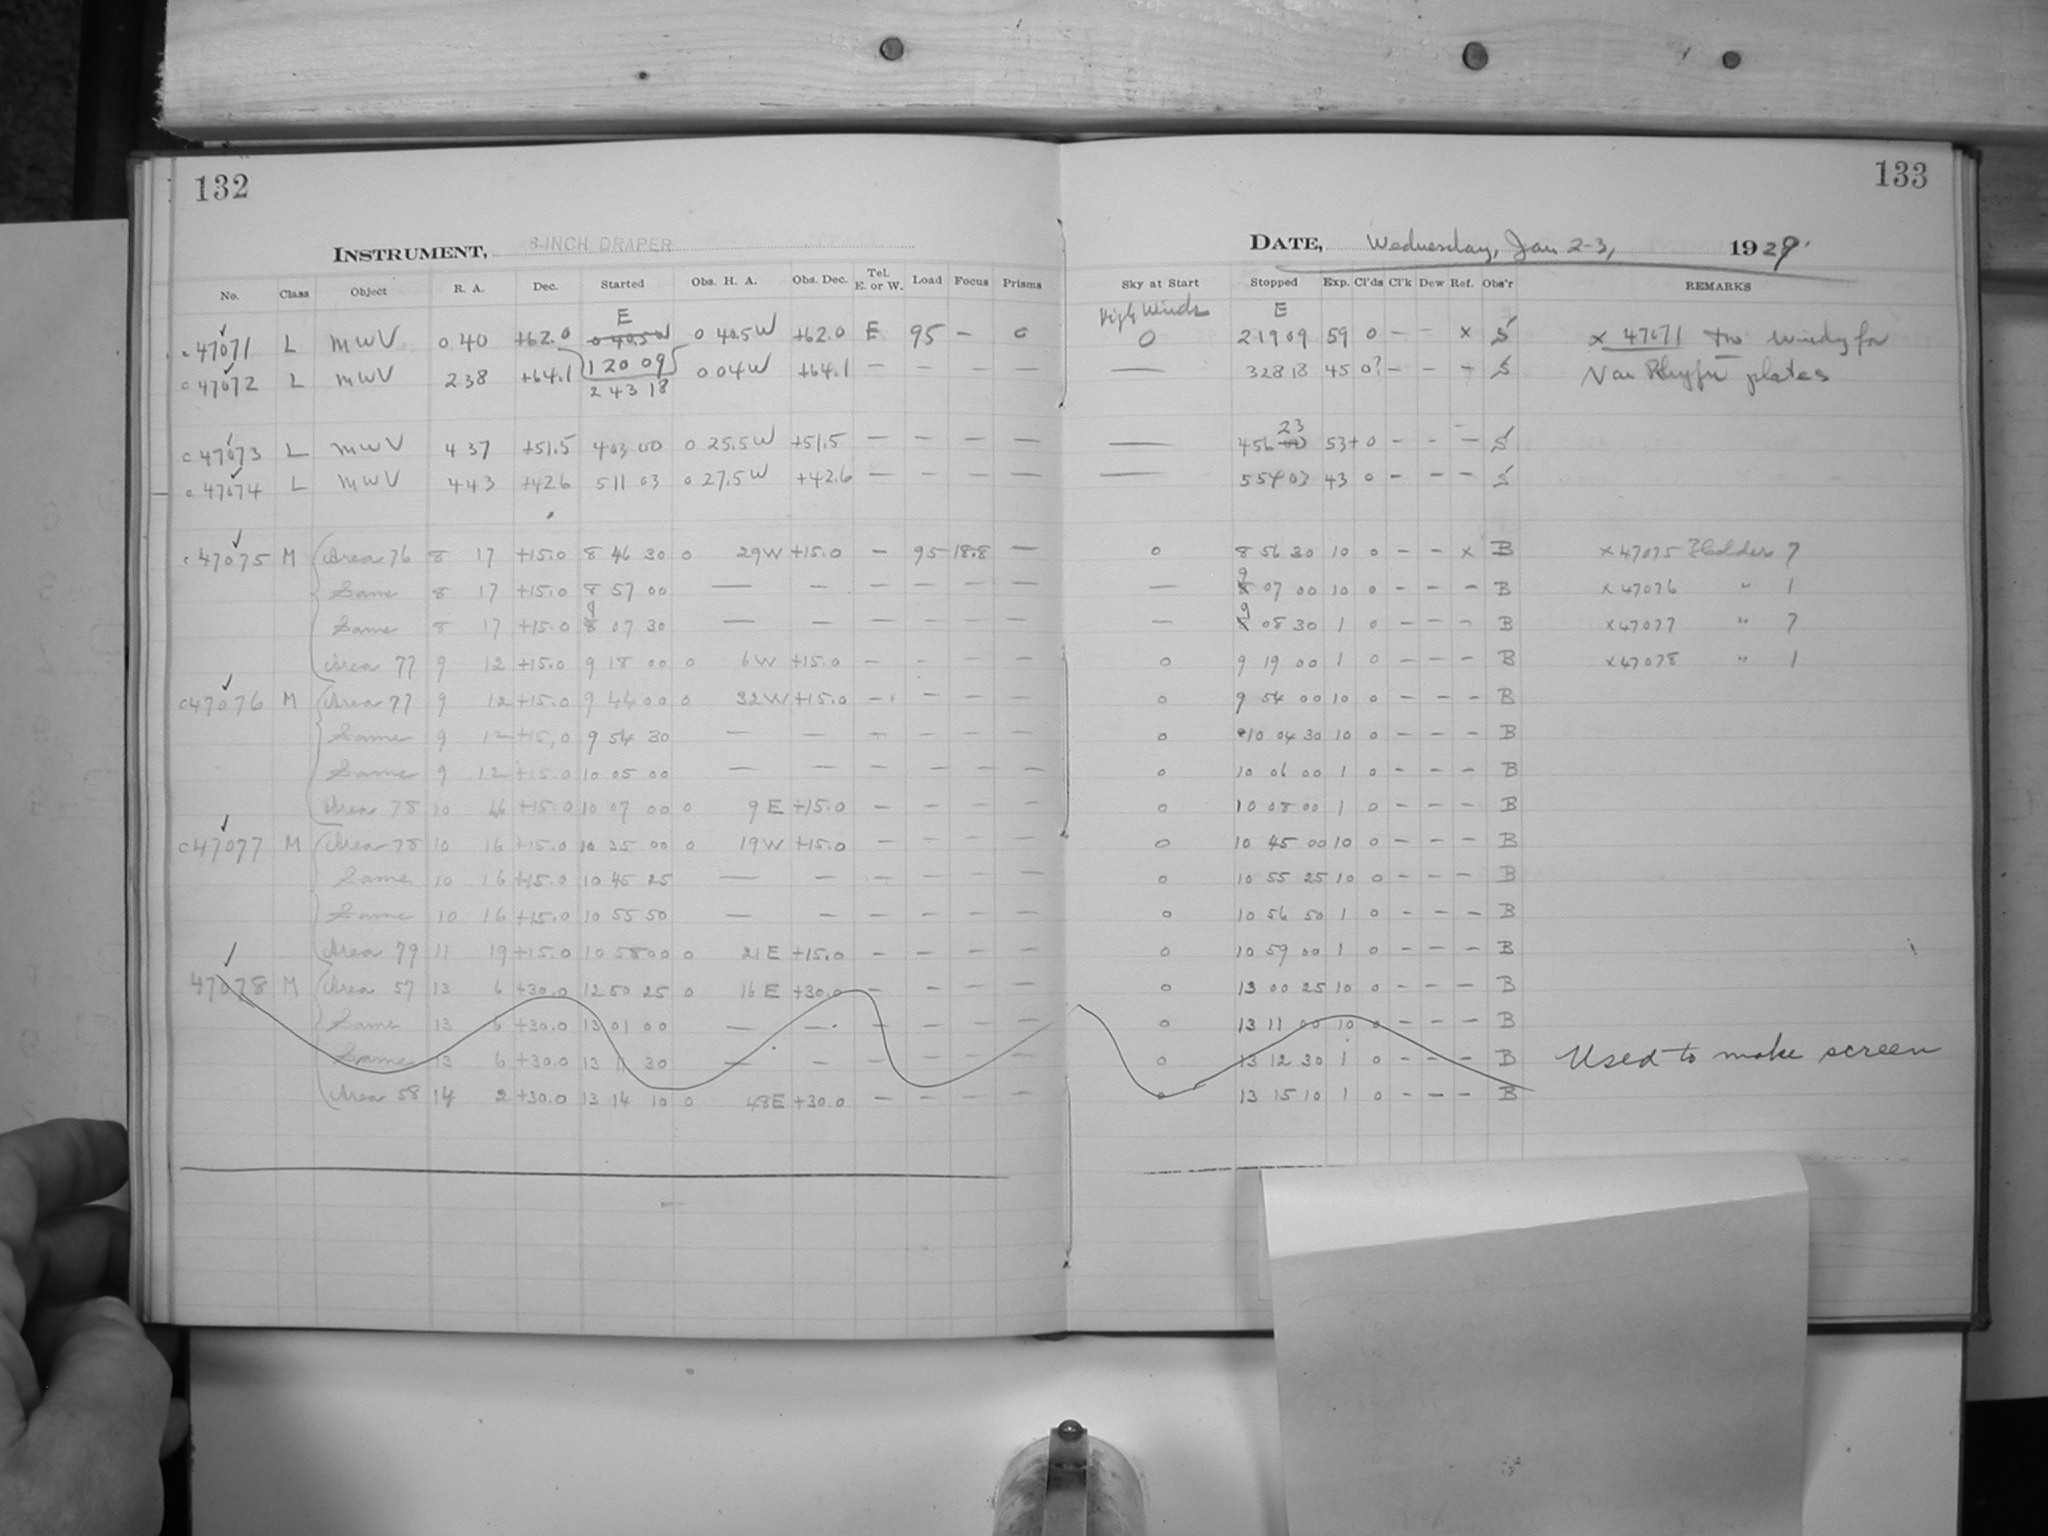 132
133
INSTRUMENT, 8-INCH DRAPER
DATE, Wednesday, Jan 2-3, 1929
No. Class Object R. A. Dec. Started Obs. H. A. Obs. Dec. Tel. E. or W. Load Focus Prisms Sky at Start Stopped Exp. Cl'ds Cl'k Dew Ref. Obs'r REMARKS
E High Winds E
c 47071 L MWV 0 40 +62.0 0 40.5W 0 40.5W +62.0 E 95 — 0 0 2 19 09 59 0 – – x S x 47071 too windy for
c 47072 L MWV 2 38 +64.1 1 20 09 0 04W +64.1 — — — — — 3 28 18 45 0? – – – S plates
2 43 18
23
c 47073 L MWV 4 37 +51.5 4 03 00 0 25.5W +51.5 — — — — — 4 56 00 53+ 0 – – – S
c 47074 L MWV 4 43 +42.6 5 11 03 0 27.5W +42.6 — — — — — 5 54 03 43 0 – – – S
c 47075 M Area 76 8 17 +15.0 8 46 30 0 29W +15.0 — 95 18.8 — 0 8 56 30 10 0 – – x B x 47075 Holder 7
Same 8 17 +15.0 8 57 00 — — — — — — — 9 07 00 10 0 – – – B x 47076 " 1
Same 8 17 +15.0 9 07 30 — — — — — — — 9 08 30 1 0 – – – B x 47077 " 7
Area 77 9 12 +15.0 9 18 00 0 6W +15.0 — — — — 0 9 19 00 1 0 – – – B x 47078 " 1
c 47076 M Area 77 9 12 +15.0 9 44 00 0 32W +15.0 — — — — 0 9 54 00 10 0 – – – B
Same 9 12 +15.0 9 54 30 — — — — — — 0 10 04 30 10 0 – – – B
Same 9 12 +15.0 10 05 00 — — — — — — 0 10 06 00 1 0 – – – B
Area 78 10 16 +15.0 10 07 00 0 9 E +15.0 — — — — 0 10 08 00 1 0 – – – B
c 47077 M Area 78 10 16 +15.0 10 35 00 0 19W +15.0 — — — — 0 10 45 00 10 0 – – – B
Same 10 16 +15.0 10 45 25 — — — — — — 0 10 55 25 10 0 – – – B
Same 10 16 +15.0 10 55 50 — — — — — — 0 10 56 50 1 0 – – – B
Area 79 11 19 +15.0 10 58 00 0 21 E +15.0 — — — — 0 10 59 00 1 0 – – – B
47078 M Area 57 13 6 +30.0 12 50 25 0 16 E +30.0 — — — — 0 13 00 25 10 0 – – – B
Same 13 6 +30.0 13 01 00 — — — — — — 0 13 11 00 10 0 – – – B
Same 13 6 +30.0 13 11 30 — — — — — — 0 13 12 30 1 0 – – – B Used to make screen
Area 58 14 2 +30.0 13 14 10 0 48E +30.0 — — — — 0 13 15 10 1 0 – – – B